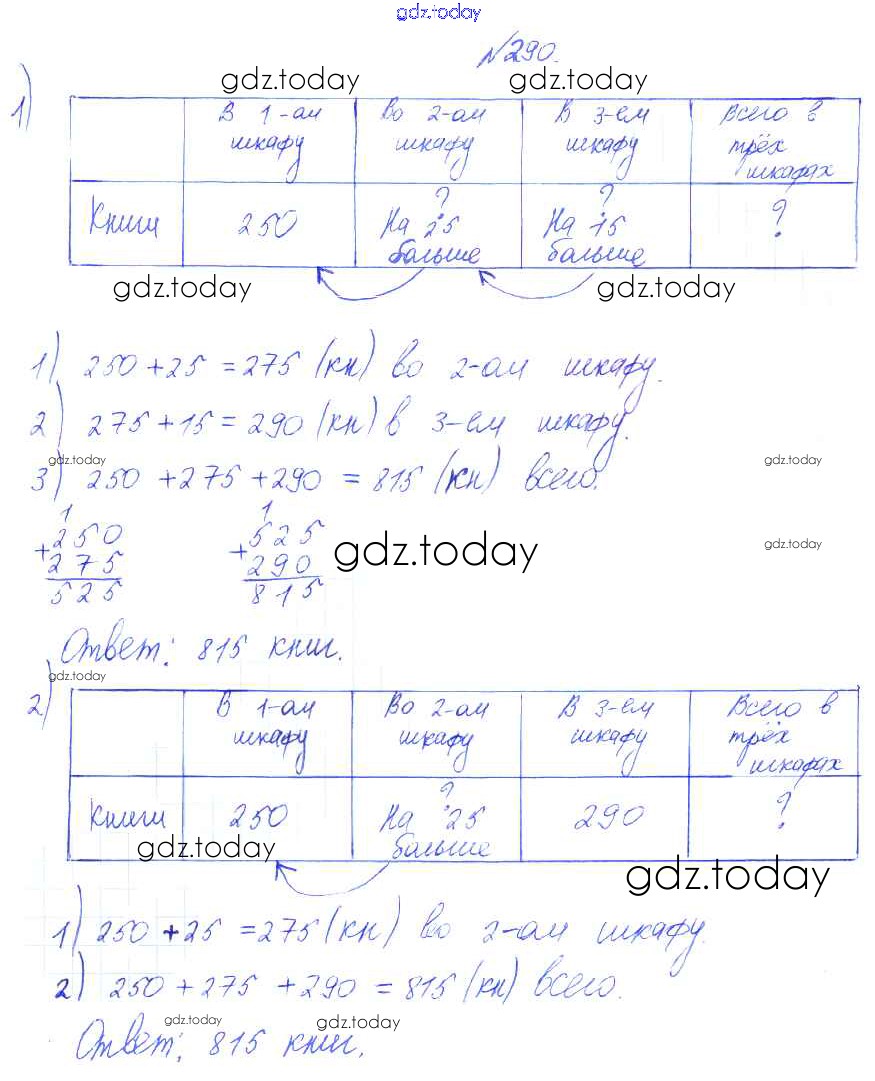 gdz.today
№290.
gdz.today gdz.today
1)
В 1-ом шкафу | Во 2-ом шкафу | В 3-ем шкафу | Всего в трёх шкафах
Книги | 250 | ? На 25 больше | ? На 15 больше | ?
gdz.today gdz.today
1) 250 + 25 = 275 (кн) во 2-ом шкафу.
2) 275 + 15 = 290 (кн) в 3-ем шкафу.
gdz.today gdz.today
3) 250 + 275 + 290 = 815 (кн) всего.
1 1
+250 +525
275 290
525 815
gdz.today gdz.today
Ответ: 815 книг.
gdz.today
2)
В 1-ом шкафу | Во 2-ом шкафу | В 3-ем шкафу | Всего в трёх шкафах
Книги | 250 | ? На 25 больше | 290 | ?
gdz.today gdz.today
1) 250 + 25 = 275 (кн) во 2-ом шкафу.
2) 250 + 275 + 290 = 815 (кн) всего.
gdz.today gdz.today
Ответ: 815 книг.